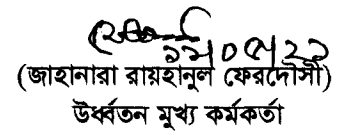 (জাহানারা রায়হানুল ফেরদৌসী)
উর্ধ্বতন মুখ্য কর্মকর্তা